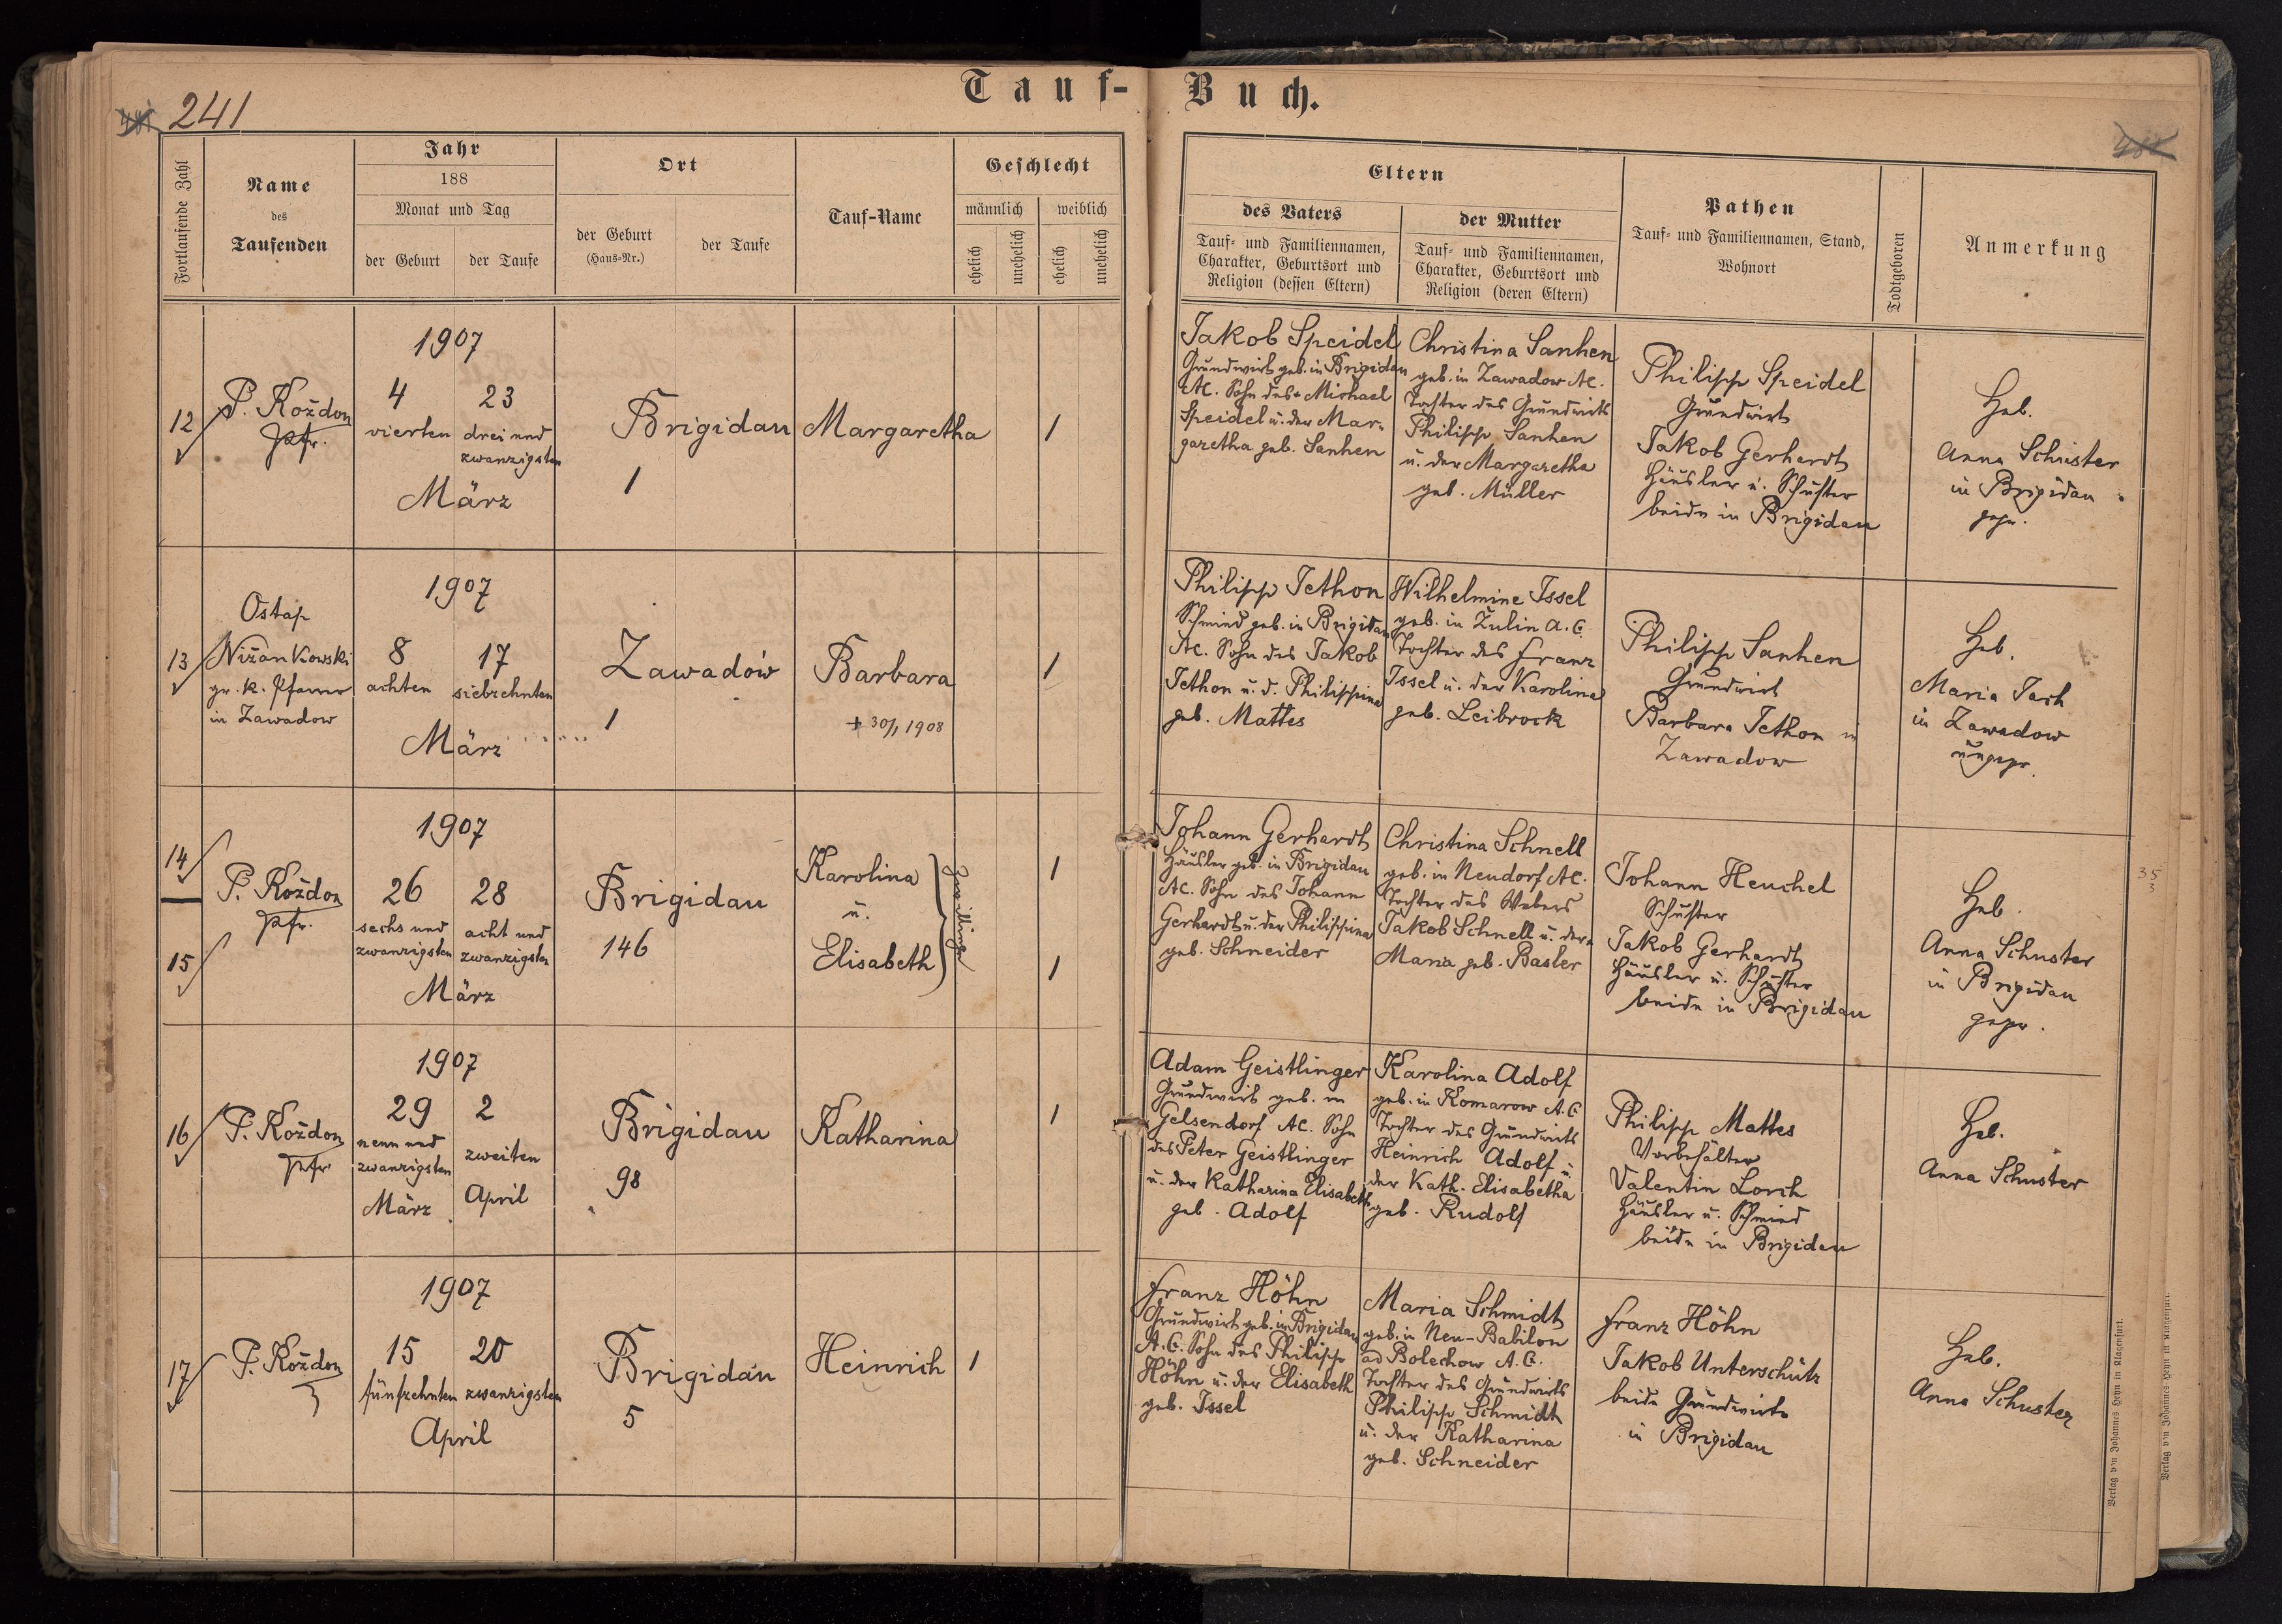 Tauf-Buch.
241
Fortlaufende Zahl
Name
des
Taufenden
Jahr
188
Monat und Tag
der Geburt
der Taufe
Ort
der Geburt
(Haus-Nr.)
der Taufe
Tauf-Name
Geschlecht
männlich
weiblich
ehelich
unehelich
ehelich
unehelich
Eltern
des Vaters
Tauf- und Familiennamen,
Charakter, Geburtsort und
Religion (dessen Eltern)
der Mutter
Tauf- und Familiennamen,
Charakter, Geburtsort und
Religion (deren Eltern)
Pathen
Tauf- und Familiennamen, Stand,
Wohnort
Todtgeboren
Anmerkung
12
P. Koždon
Pfr.
1907
4 23
vierten
drei und
zwanzigsten
März
Brigidau
1
Margaretha
1
Jakob Speidel
Grundwirt geb. in Brigidau
AC. Sohn des + Michael
Speidel u. der Mar-
garetha geb. Sanhen
Christina Sanhen
geb. in Zawadow AC.
Tochter des Grundwirts
Philipp Sanhen
u. der Margaretha
geb. Müller
Philipp Speidel
Grundwirt
Jakob Gerhardt
Häusler u. Schuster
beide in Brigidau
Heb.
Anna Schuster
in Brigidau
gepr.
13
Ostap
Nižankowski
gr. k. Pfarrer
in Zawadow
1907
8 17
achten siebzehnten
März
Zawadów
1
Barbara
+ 30/1 1908
1
Philipp Jethon
Schmied geb. in Brigidau
AC. Sohn des Jakob
Jethon u. d. Philippina
geb. Mattes
Wilhelmine Issel
geb. in Zulin A.C.
Tochter des Franz
Issel u. der Karolina
geb. Leibrock
Philipp Sanhen
Grundwirt
Barbara Jethon in
Zawadow
Heb.
Maria
in Zawadow
ungepr.
14
15
P. Koždon
Pfr.
1907
26 28
sechs und
zwanzigsten
acht und
zwanzigsten
März
Brigidau
146
Karolina
u.
Elisabeth
Zwillinge
1
1
Johann Gerhardt
Häusler geb. in Brigidau
AC. Sohn des Johann
Gerhardt u. der Philippina
geb. Schneider
Christina Schnell
geb. in Neudorf AC.
Tochter des Webers
Jakob Schnell u. der
Maria geb. Basler
Johann Heuchel
Schuster
Jakob Gerhardt
Häusler u. Schuster
beide in Brigidau
Heb.
Anna Schuster
in Brigidau
gepr.
35
3
16
P. Koždon
Pfr.
1907
29 2
neun und
zwanzigsten
zweiten
März
April
Brigidau
98
Katharina
1
Adam Geistlinger
Grundwirt geb. in
Gelsendorf AC. Sohn
des Peter Geistlinger
u. der Katharina Elisabeth
geb. Adolf
Karolina Adolf
geb. in Komarow A.C
Tochter des Grundwirts
Heinrich Adolf u.
der Kath. Elisabetha
geb. Rudolf
Philipp Mattes
Vorbehälter
Valentin Lorch
Häusler u. Schmied
beide in Brigidau
Heb.
Anna Schuster
17
P. Koždon
1907
15 20
fünfzehnten zwanzigsten
April
Brigidau
5
Heinrich
1
Franz Höhn
Grundwirt geb. in Brigidau
A.C. Sohn des Philipp
Höhn u. der Elisabeth
geb. Issel
Maria Schmidt
geb. in Neu-Babilon
ad Bolechow A.C.
Tochter des Grundwirts
Philipp Schmidt
u. der Katharina
geb. Schneider
Franz Höhn
Jakob Unterschütz
beide Grundwirte
in Brigidau
Heb.
Anna Schuster
Verlag von Johannes Heyn in Klagenfurt.
Verlag von Johannes Heyn in Klagenfurt.